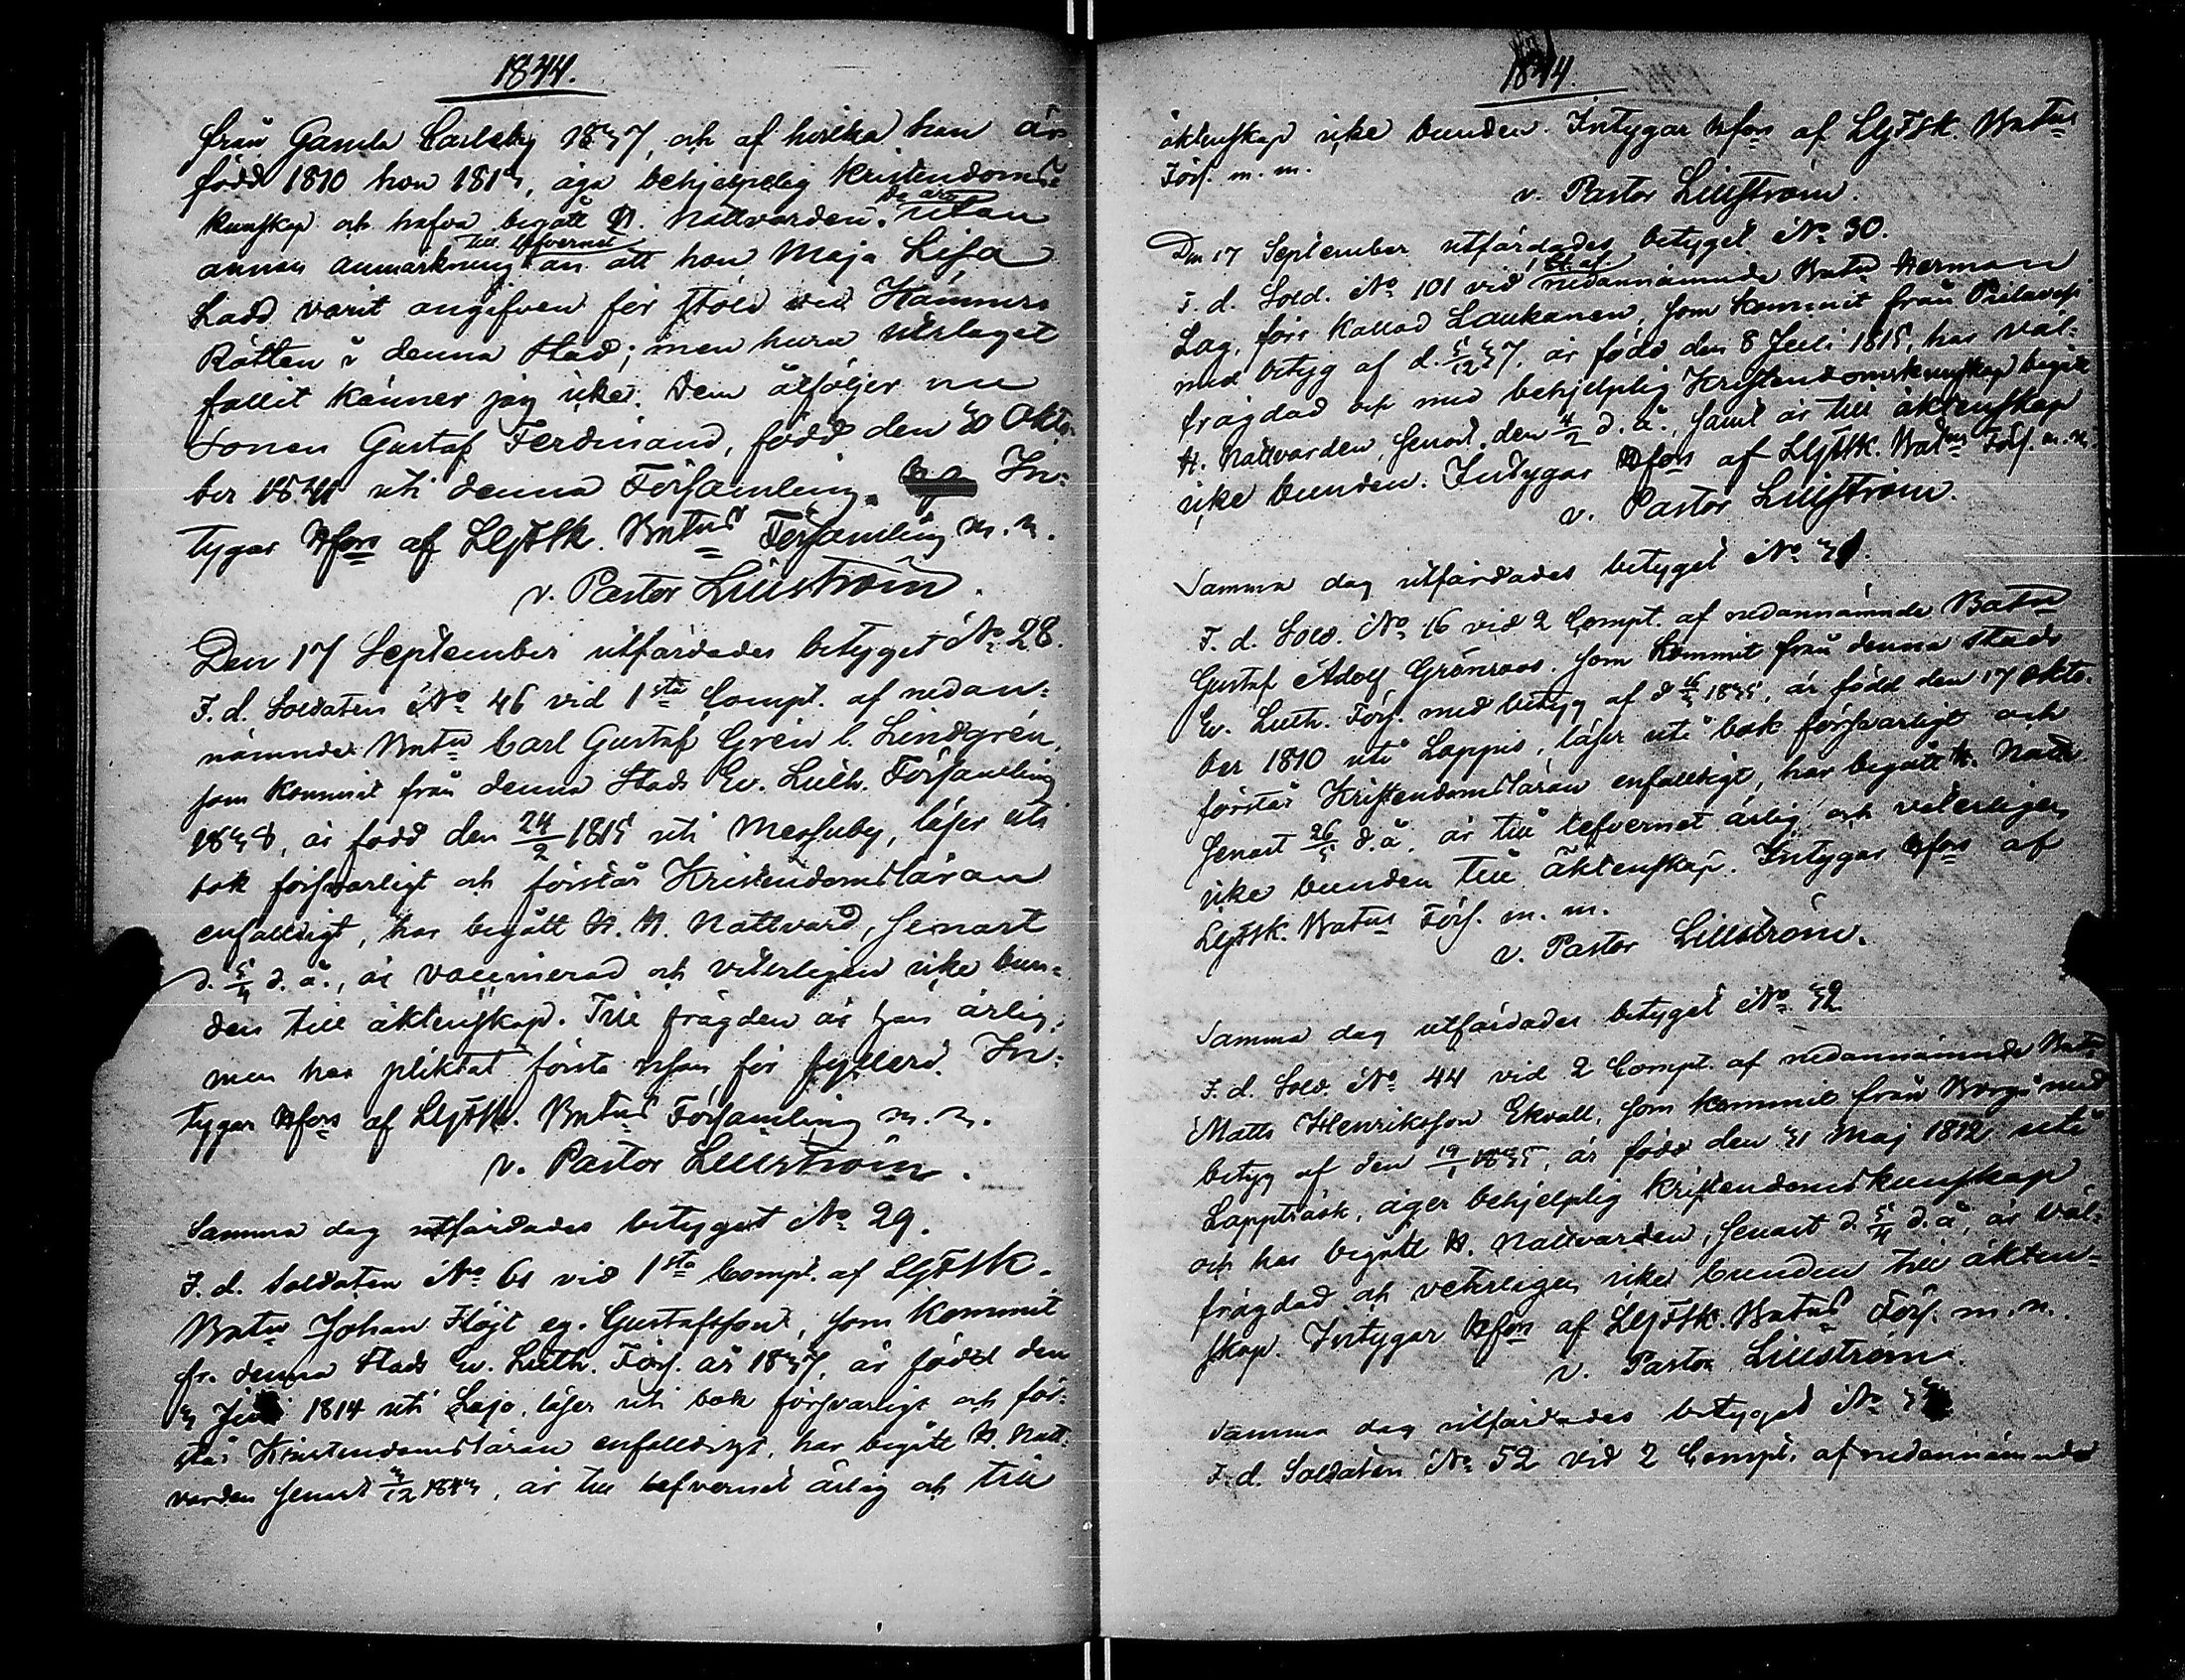 1844.
från Gamla Carleby 1837, och af hvilka han är
född 1810 hon 1813, äga behjelpelig Kristendoms-
kunskap och hafva begått H. Nattvarden. De äro utan
annan anmärkning till lefvernet än att hon Maja Lisa
Ladd varit angifven för stöld vid Kämners
Rätten i denna Stad; men huru utslaget
fallit känner jag icke. Dem åtföljer nu
Sonen Gustaf Ferdinand, född den 30 Okto-
ber 1841 uti denna Församling. In-
tygar Hfors af LGFSk. Batns Församling m. m.
v. Pastor Lillström.
Den 17 September utfärdades betyget No 28.
F. d. Soldaten No 46 vid 1sta Compt. af nedan-
nämnde Batn Carl Gustaf Grén l. Lindgrén,
som kommit från denna Stads Ev. Luth. Församling
1838, är född den 24/2 1815 uti Messuby, läser uti
bok försvarligt och förstår Kristendomsläran
enfalldigt, har begått H. H. Nattvard, senast
d. 5/4 d. å., är vaccinerad och veterligen icke bun-
den till äktenskap. Till frägden är han ärlig,
men har pliktat första resan för fylleri. In-
tygar Hfors af LGFSk. Batns Församling m. m.
v. Pastor Lillström.
Samma dag utfärdades betyget No 29.
F. d. Soldaten No 61 vid 1sta Compt. af LGFSk.
Batn Johan Flöjt eg. Gustafsson, som kommit
fr. denna Stads Ev. Luth. Förs. år 1837, är född den
3 1814 uti Lojo, läser uti bok försvarligt och för-
står Kristendomsläran enfalldigt, har begått H. Natt-
varden senast 3/12 1843, är till lefvernet ärlig och till
1844.
äktenskap icke bunden. Intygar Hfors af LGFSk. Batns
Förs. m. m.
v. Pastor Lillström.
Den 17 September utfärdades betyget No 30.
F. d. Sold. No 101 vid nedannämnde Batn Herman
Lag, förr kallad Laukanen, som kommit från Pielaves
med betyg af d. 5/12 37, är född den 8 Juli 1815, har väl-
frägdad och med behjelplig Kristendomskunskap begått
H. Nattvarden, senast den 4/2 d. å., samt är till äktenskap
icke bunden. Intygar Hfors af LGFSk. Batns Förs. m. m.
v. Pastor Lillström.
Samma dag utfärdades betyget No 31.
F. d. Sold. No 16 vid 2 Compt. af nedannämnde Batn
Gustaf Adolf Grönroos, som kommit från denna Stads
Ev. Luth. Förs. med betyg af d 1835, är född den 17 Okto-
ber 1810 uti Lappis, läser uti bok försvarligt och
förstår Kristendomsläran enfalldigt, har begått H. Nattv.
senast 26/5 d. å. är till lefvernet ärlig och veterligen
icke bunden till äktenskap. Intygar Hfors af
LGFSk. Batns Förs. m. m.
v. Pastor Lillström.
Samma dag utfärdades betyget No 32
F. d. Sold. No 44 vid 2 Compt. af nedannämnde Batn
Matts Henriksson Ekvall, som kommit från Borgå med
betyg af den 19/1 1835, är född den 31 Maj 1812 uti
Lappträsk, äger behjelplig Kristendomskunskap
och har begått H. Nattvarden, senast d. 5/4 d. å, är väl-
frägdad och veterligen icke bunden till äkten-
skap. Intygar Hfors af LGFSk. Batns Förs. m. m.
v. Pastor Lillström.
Samma dag utfärdades betyget No 33
F. d. Soldaten No 52 vid 2 Compt. af nedannämnde